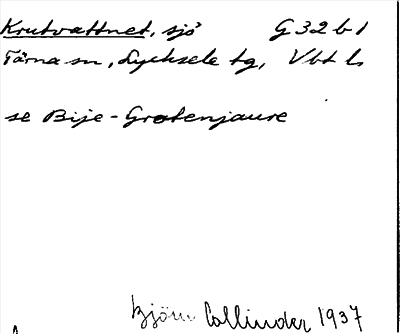 Krutvattnet, sjö G 32 b 1
Tärna sn, Lycksele tg, Vbt l.
se Bije-Gratenjaure
Björn Collinder 1937